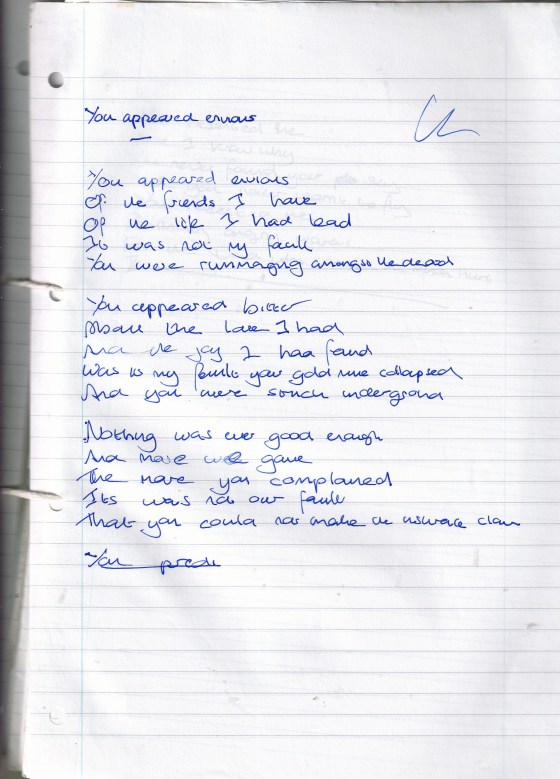 You appeared envious
You appeared envious
Of the friends I have
Of the life I had lead
It was not my fault
You were rummaging amongst the dead
You appeared bitter
About the love I had
And the joy I had found
Was it my fault your gold mine collapsed
And you were stuck underground
Nothing was ever good enough
And more we gave
The more you complained
Its was not our fault
That you could not make an insurance claim
You